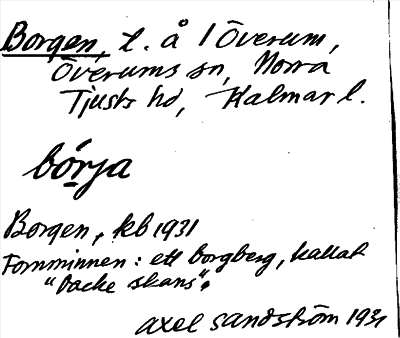 Borgen, l. å 1 Överum,
Överums sn, Norra
Tjusts hd, Kalmar l.
börja
Borgen, kb 1931
Fornminnen: ett borgberg, kallat
"Dacke skans".
Axel Sandström 1931